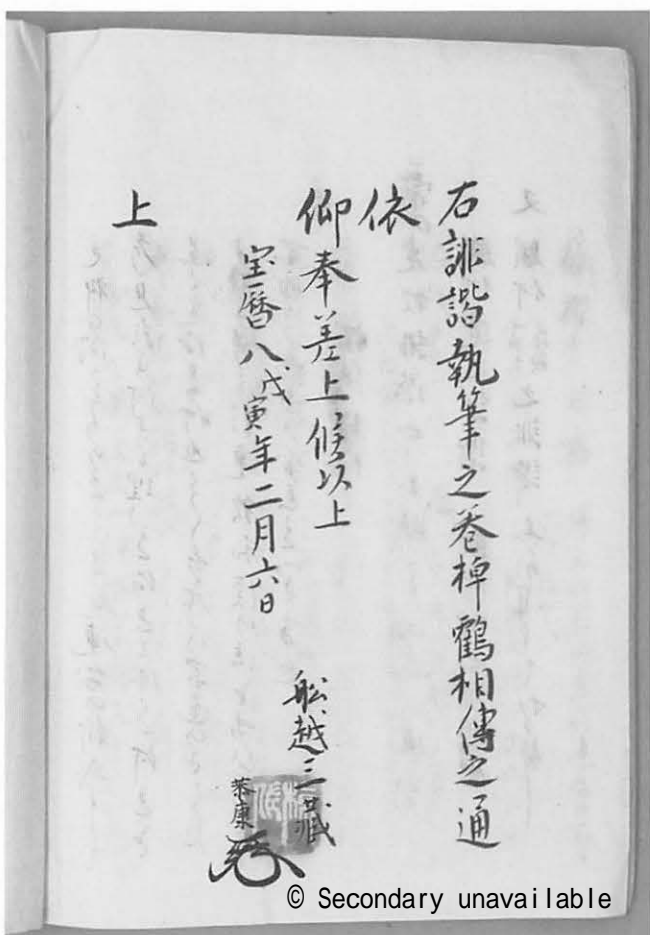 右誹諧執筆之巻棹鶴相傳之通
依
仰奉差上候以上
宝暦八戊寅年二月六日
舩越三蔵
恭康
上
© Secondary unavailable